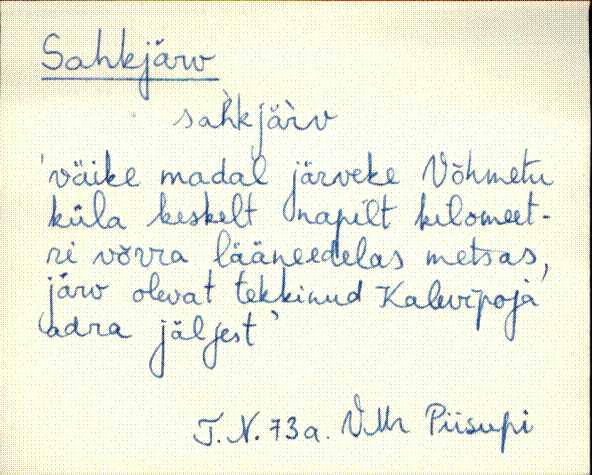 Sahkjärv
sah̀kjär̀v
'väike madal järveke Võhmetu
küla keskelt napilt kilomeet-
ri võrra lääneedelas metsas,
järv olevat tekkinud Kalevipoja
adra jäljest'
T.N. 73a. VMr Piisupi